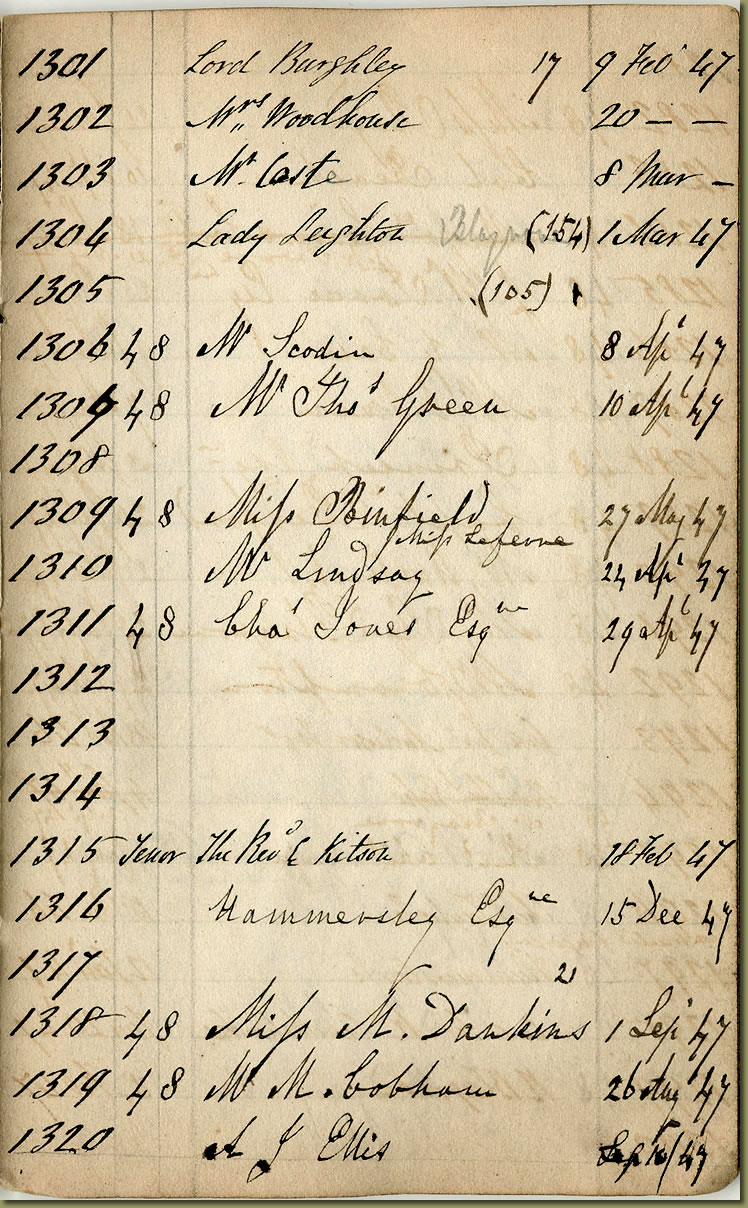 1301 Lord Burghley 17 9 Feb 47
1302 Mrs Woodhouse 20 — —
1303 Mr Caste 8 Mar —
1304 Lady Leighton (154) 1 Mar 47
1305 (105)
1306 48 Mr Scodin 8 Apl 47
1307 48 Mr Thos Green 10 Apl 47
1308
1309 48 Miss 27 May 47
Miss Lefevre
1310 Mr Lindsay 24 Apl 47
1311 48 Chas Jones Esqre 29 Apl 47
1312
1313
1314
1315 Tenor The Revd E Kitson 18 Feb 47
1316 Hammersley Esqre 15 Dec 47
1317
21
1318 48 Miss M. Dawkins 1 Sep 47
1319 48 Mr M. Cobham 26 Aug 47
1320 A J Ellis Sep 47